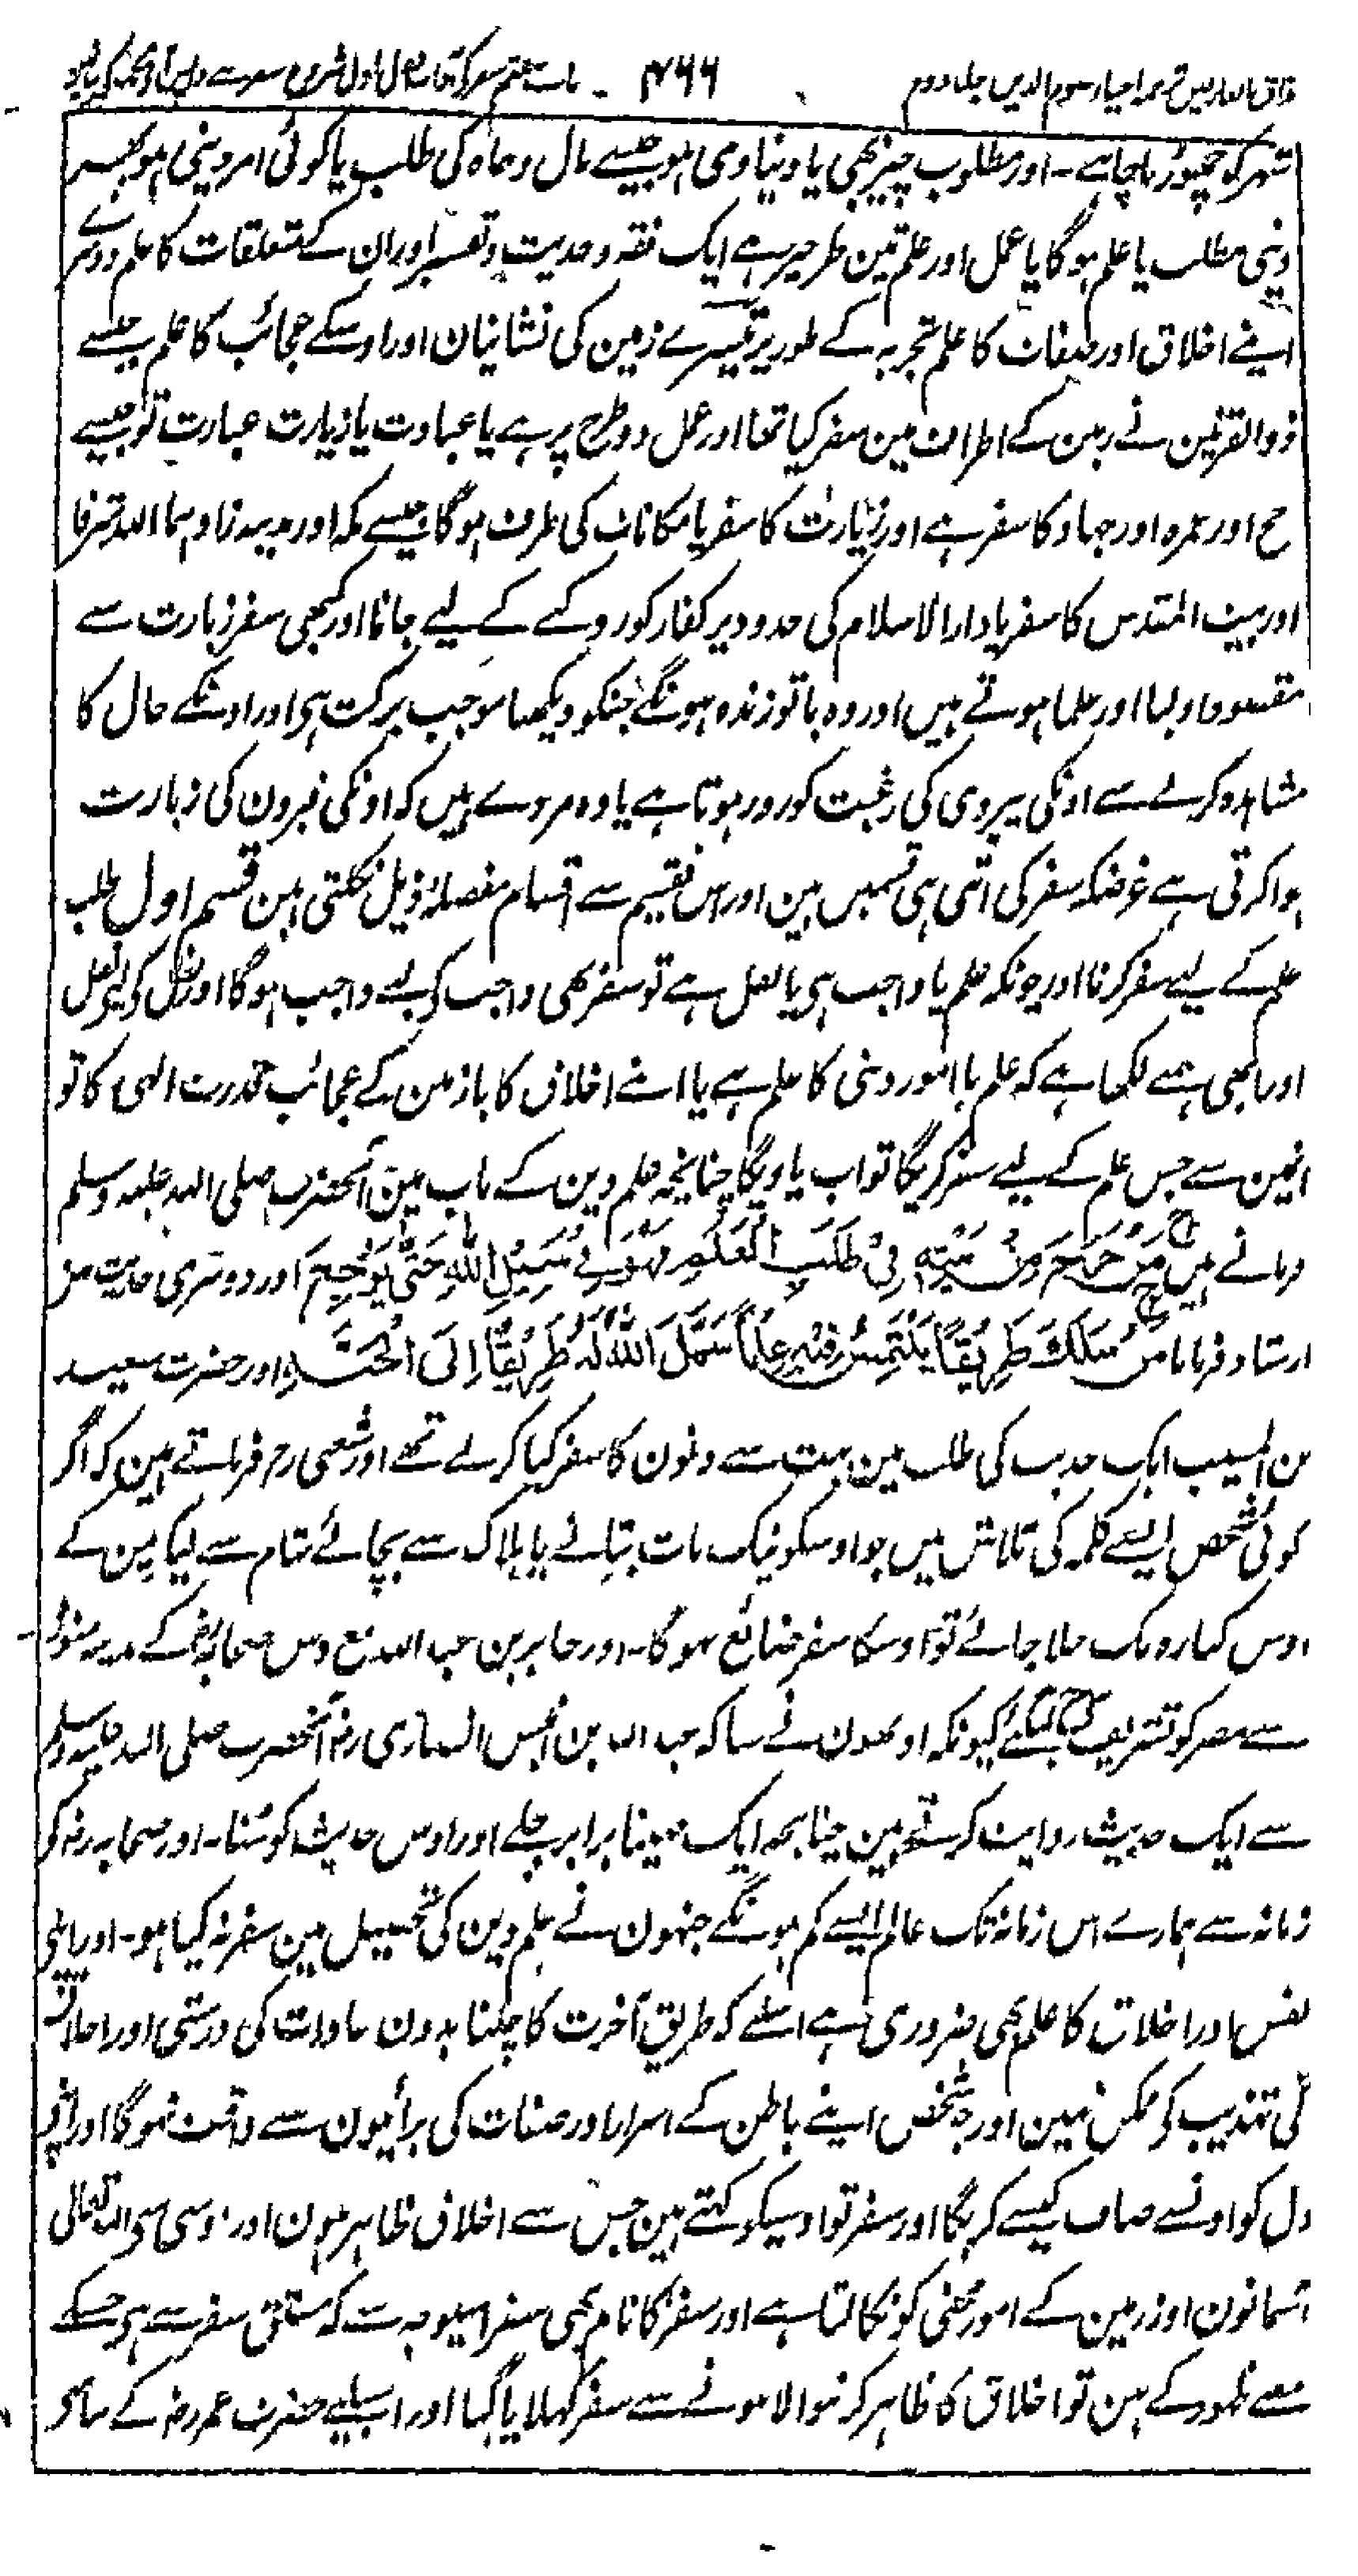 مذاق العارفین ترجمہ احیاء علوم الدین جلد دوم ۴۶۶ باب ہفتم سفر کے آداب فصل اول شروع سفر سے واپس آنے تک کے
شہر کو چھوڑنا چاہے ۔ اور مطلوب چیز بھی یا دنیاوی ہو جیسے مال و جاہ کی طلب یا کوئی امر دینی ہو پھر
دینی مطلب یا علم ہو گا یا عمل اور علم تین طرح پر ہے ایک فقہ و حدیث و تفسیر اور ان کے متعلقات کا علم دوسرے
اپنے اخلاق اور صفات کا علم تجربہ کے طور پر تیسرے زمین کی نشانیان اور اوسکے عجائب کا علم جیسے
ذوالقرنین نے زمین کے اطراف مین سفر کیا تھا اور عمل دو طرح پر ہے یا عبادت یا زیارت عبادت تو جیسے
حج اور عمرہ اور جہاد کا سفر ہے اور زیارت کا سفر یا مکانات کی طرف ہو گا جیسے مکہ اور مدینہ زادہما اللہ شرفا
اور بیت المقدس کا سفر یا دارالاسلام کی حدود پر کفار کو روکنے کے لیے جانا اور کبھی سفر زیارت سے
مقصود اولیا اور علما ہوتے ہیں اور وہ یا تو زندہ ہونگے جنکو دیکھنا موجب برکت ہی اور اونکے حال کا
مشاہدہ کرنے سے اونکی پیروی کی رغبت کو زور ہوتا ہے یا وہ مردے ہیں کہ اونکی قبرون کی زیارت
ہوا کرتی ہے غرضکہ سفر کی اتنی ہی قسمیں ہین اور اس تقسیم سے اقسام مفصلہ ذیل نکلتی ہین قسم اول طلب
علم کے لیے سفر کرنا اور چونکہ علم یا واجب ہی یا نفل ہے تو سفر بھی واجب کے لیے واجب ہو گا اور نفل کے لیے نفل
اور ابھی ہمنے لکھا ہے کہ علم یا امور دینی کا علم ہے یا اپنے اخلاق کا یا زمین کے عجائب قدرت الہی کا تو
انمین سے جس علم کے لیے سفر کریگا ثواب پاویگا چنانچہ علم دین کے باب مین آنحضرت صلی اللہ علیہ وسلم
فرماتے ہیں مَنْ خَرَجَ مِنْ بَيْتِهِ فِيْ طَلَبِ الْعِلْمِ فَهُوَ فِي سَبِيْلِ اللّٰهِ حَتّٰى يَرْجِعَ اور دوسری حدیث مین
ارشاد فرمایا مَنْ سَلَكَ طَرِيْقًا يَلْتَمِسُ فِيْهِ عِلْمًا سَهَّلَ اللّٰهُ لَهٗ طَرِيْقًا اِلَى الْجَنَّةِ اور حضرت سعید
بن المسیب ایک حدیث کی طلب مین بہت سے دنون کا سفر کیا کرتے تھے اور شعبی رح فرماتے ہین کہ اگر
کوئی شخص ایسے کلمہ کی تلاش میں جو اوسکو نیک بات بتائے یا ہلاک سے بچائے شام سے لیکر یمن کے
اوس کنارہ تک چلا جائے تو اوسکا سفر ضائع نہوگا ۔ اور جابر بن عبد اللہ مع دس صحابہ رض کے مدینہ منورہ
سے مصر کو تشریف لیگئے کیونکہ اونھون نے سنا کہ عبد اللہ بن انیس انصاری رض آنحضرت صلی اللہ علیہ وسلم
سے ایک حدیث روایت کرتے ہین چنانچہ ایک مہینا برابر چلے اور اوس حدیث کو سُنا ۔ اور صحابہ رض کے
زمانہ سے ہمارے اس زمانہ تک عالم ایسے کم ہونگے جنہون نے علم دین کی تحصیل مین سفر نہ کیا ہو ۔ اور اپنے
نفس اور اخلاق کا علم بھی ضروری ہے اسلئے کہ طریق آخرت کا چلنا بدون عادات کی درستی اور اخلاق
کی تہذیب کے ممکن نہین اور جو شخص اپنے باطن کے اسرار اور صفات کی برائیون سے واقف نہوگا اور اپنے
دل کو اونسے صاف کیسے کریگا اور سفر تو اوسیکو کہتے ہین جس سے اخلاق ظاہر ہون اور اوسی سی اللہ تعالی
آسمانون اور زمین کے امور مخفی کو نکالتا ہے اور سفر کا نام بھی سفر اسیوجہ سے کہ مشتق سفر سے ہی جسکے
معنے ظہور کے ہین تو اخلاق کا ظاہر کرنیوالا ہونے سے سفر کہلایا گیا اور اسیلیے حضرت عمر رض کے سامنے